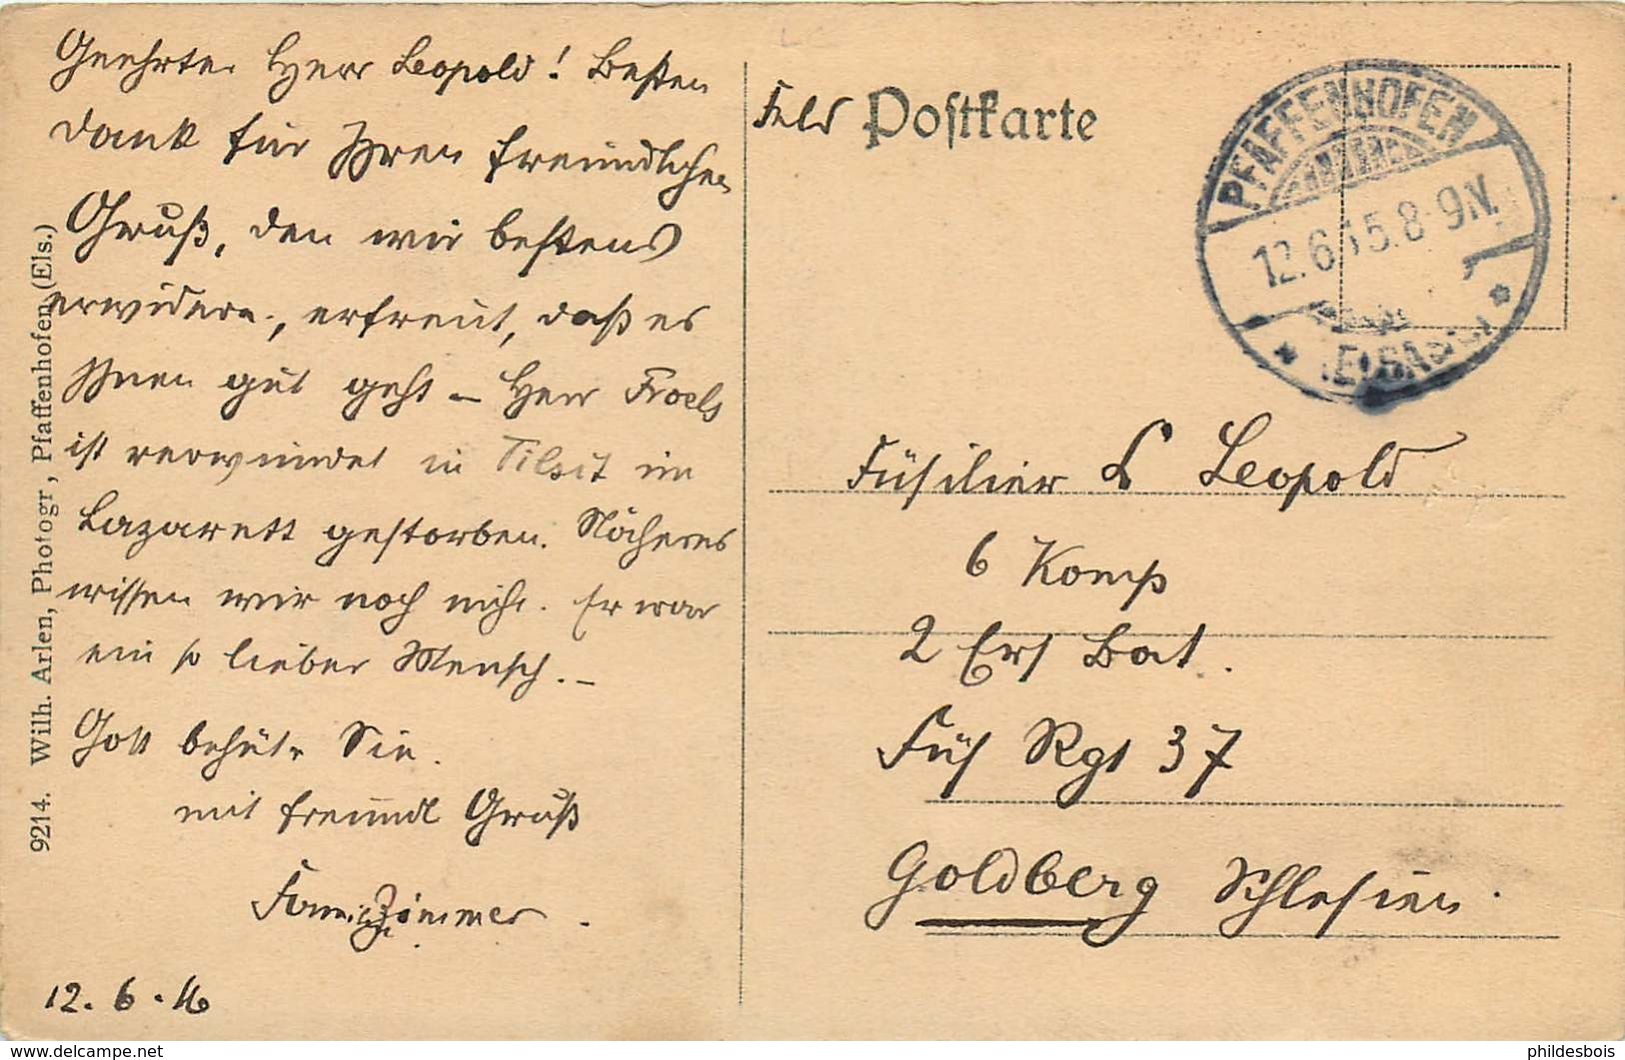 Geehrter Herr Leopold! Besten
Dank für Ihren freundlichen
Gruß, den wir bestens
erwidern, erfreut, daß es
Ihnen gut geht – Herr Froels
ist verwundet in Tilsit im
Lazarett gestorben. Näheres
wissen wir noch nicht. Er war
ein so lieber Mensch. –
Gott behüte Sie.
mit freundl Gruß
Familie Zimmer.
12. 6. 16
9214. Wilh. Arlen, Photogr, Pfaffenhofen (Els.)
Feld Postkarte
PFAFFENHOFEN
12.6.15.8-9N.
(ELSASS)
Füsilier L Leopold
6 Komp
2 Ers Bat.
Füs Rgt 37
Goldberg Schlesien.
phildesbois